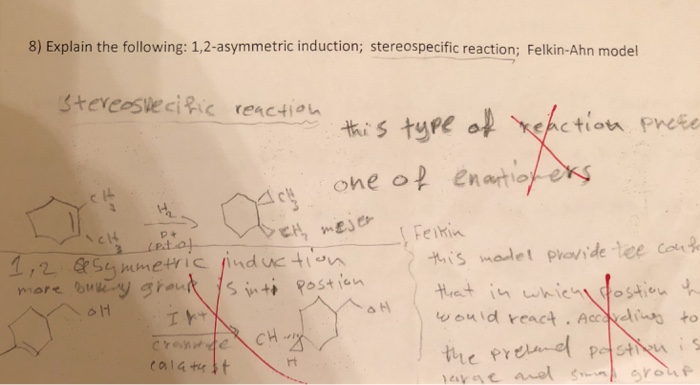 8) Explain the following: 1,2-asymmetric induction; stereospecific reaction; Felkin-Ahn model
Stereospecific reaction
this type of reaction prefe
one of enantiomers
CH3
CH3
H2
Pt
CH3
CH3 mejer
1,2 asymmetric induction
more group is inti postion
OH
OH
CH3
H
Felkin
this model provide tee
that in which postion
would react. According to
the postion is
large and small group